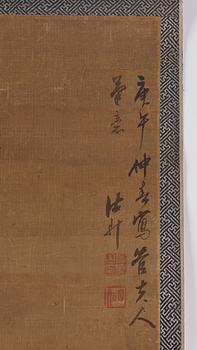 庚午仲春寫管夫人
筆意